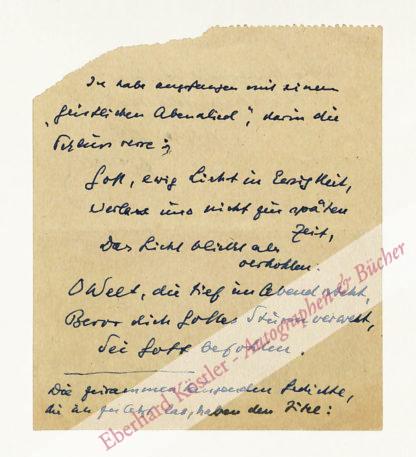 Ich habe angefangen mit einem
„Geistlichen Abendlied", darin die
Schlussverse:
Gott, ewig Licht in Ewigkeit,
Verlass uns nicht zur späten
Zeit,
Das Licht bleibt
verhohlen.
O Welt, die tief im Abend steht,
Bevor dich Gottes Sturm verweht,
Sei Gott befohlen.
Die Gedichte,
die ich las, haben den Titel:
Eberhard Köstler - Autographen & Bücher